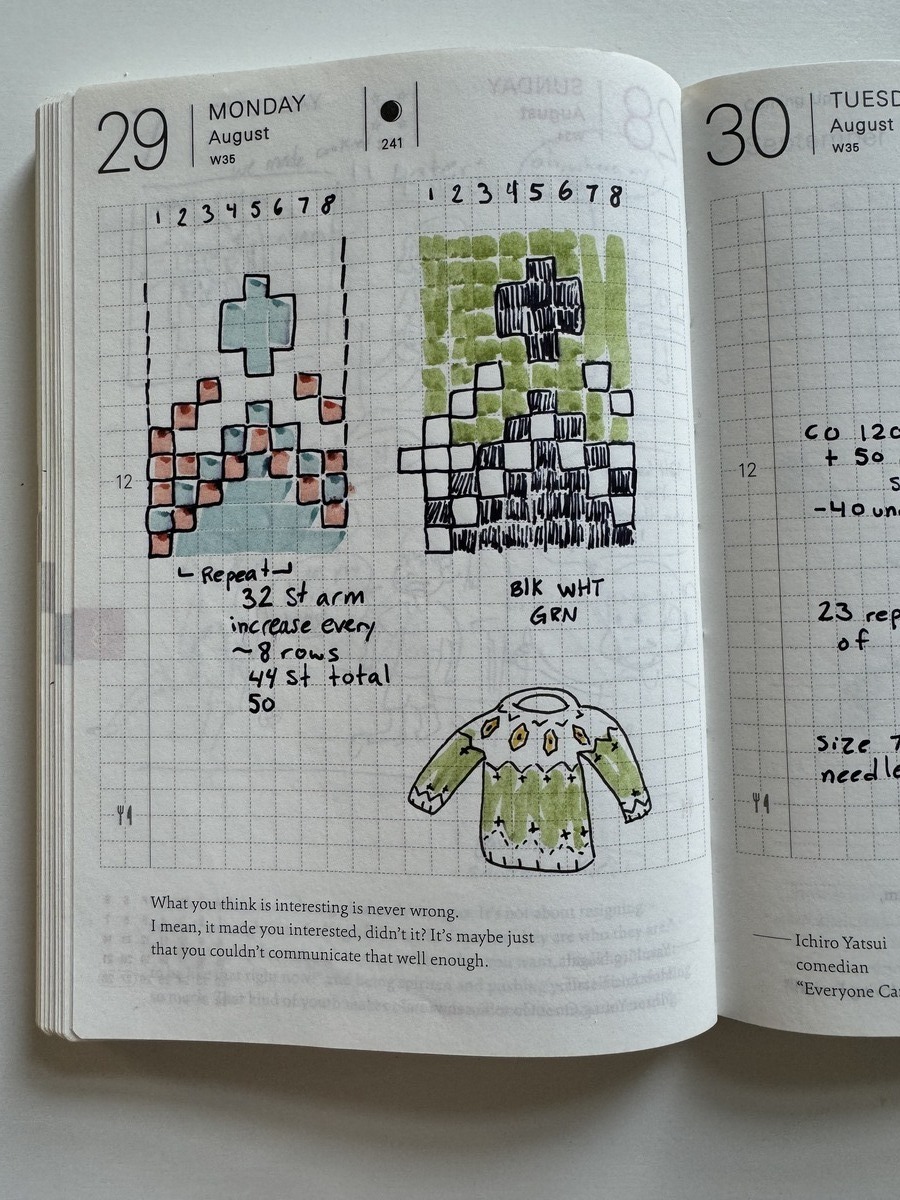 29
MONDAY
August
W35
241
1 2 3 4 5 6 7 8
1 2 3 4 5 6 7 8
12
└ Repeat ┘
32 st arm
increase every
~8 rows
44 st total
50
BlK WHT
GRN
What you think is interesting is never wrong.
I mean, it made you interested, didn't it? It's maybe just
that you couldn't communicate that well enough.
30
TUESD
August
W35
CO 120
12
+ 50
s
-40 un
23 rep
of
Size 7
needle
Ichiro Yatsui
comedian
"Everyone Ca